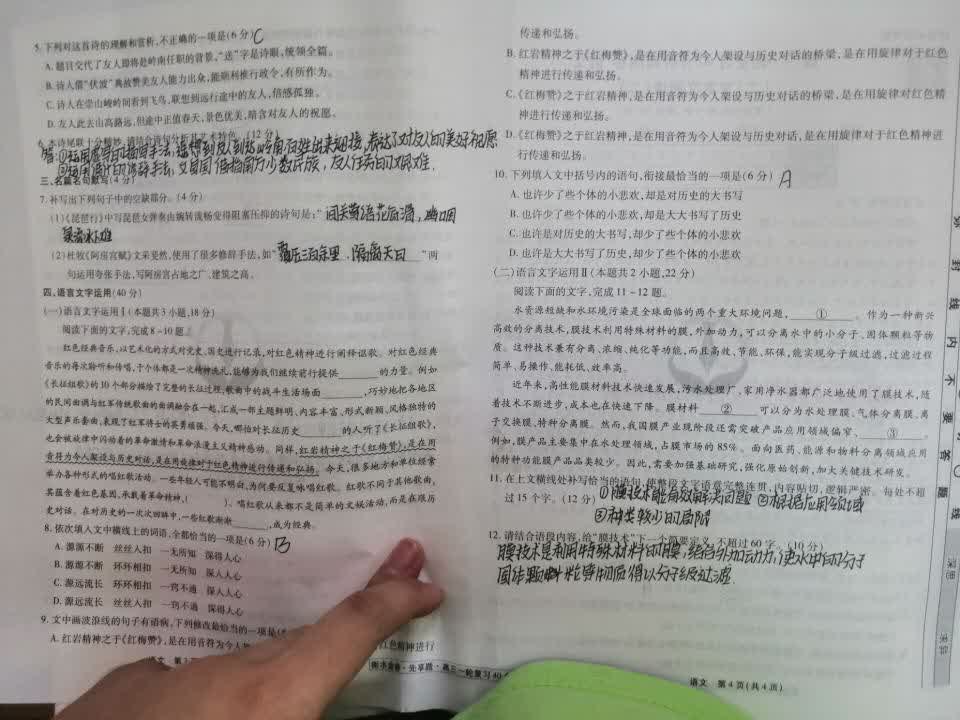 5. 下列对这首诗的理解和赏析,不正确的一项是(6分) C
A. 题目交代了友人即将赴岭南任职的背景,“送”字是诗眼,统领全篇。
B. 诗人借“伏波”典故赞美友人能力出众,能顺利推行政令,有所作为。
C. 诗人在崇山峻岭间看到飞鸟,联想到远行途中的友人,倍感孤独。
D. 友人此去山高路远,但途中正值春天,景色优美,暗含对友人的祝愿。
6. 本诗尾联十分精妙,请结合诗句分析其艺术特色。(12分)
答:①运用虚写的描写手法,
表达了对友人的美好祝愿
三、名篇名句默写(4分)
7. 补写出下列句子中的空缺部分。(4分)
(1)《琵琶行》中写琵琶女弹奏由婉转流畅变得阻塞压抑的诗句是:“间关莺语花底滑,幽咽
泉流冰下难
(2)杜牧《阿房宫赋》文采斐然,使用了很多修辞手法,如“覆压三百余里,隔离天日”两
句运用夸张手法,写阿房宫占地之广、建筑之高。
四、语言文字运用(40分)
(一)语言文字运用Ⅰ(本题共3小题,18分)
阅读下面的文字,完成8~10题。
红色经典音乐,以艺术化的方式对党史、国史进行记录,对红色精神进行阐释讴歌。对红色经典
音乐的每次聆听和传唱,于个体都是一次精神洗礼,能够为我们继续前行提供______的力量。例如
《长征组歌》的10个部分描绘了完整的长征过程,歌曲中的战斗生活场面______,巧妙地把各地区
的民间曲调与红军传统歌曲的曲调融合在一起,汇成一部主题鲜明、内容丰富、形式新颖、风格独特的
大型声乐套曲,表现了红军将士的英勇顽强。今天,哪怕对长征历史______的人听了《长征组歌》,
也会被旋律中闪动着的革命激情和革命浪漫主义精神感动。同样,红岩精神之于《红梅赞》,是在用
音符为今人架设与历史对话,是在用旋律对于红色精神进行传递和弘扬。今天,很多地方和单位经常
举办各种形式的唱红歌活动。一些年轻人可能不明白,为何要反复咏唱红歌。红歌不同于其他歌曲,
其蕴含着红色基因,承载着革命精神,( )。唱红歌从来都不是简单的文娱活动,而是在跟历
史对话。在对历史的一次次回眸中,一些红歌渐渐______,成为经典。
8. 依次填入文中横线上的词语,全都恰当的一项是(6分) B
A. 源源不断 丝丝入扣 一无所知 深得人心
B. 源源不断 环环相扣 一无所知 深入人心
C. 源远流长 环环相扣 一窍不通 深入人心
D. 源远流长 丝丝入扣 一窍不通 深得人心
9. 文中画波浪线的句子有语病,下列修改最恰当的一项是(
A. 红岩精神之于《红梅赞》,是在用音符为今人
红色精神进行
语文 第3
衡水金卷·先享题·高三一轮复习40
传递和弘扬。
B. 红岩精神之于《红梅赞》,是在用音符为今人架设与历史对话的桥梁,是在用旋律对于红色
精神进行传递和弘扬。
C. 《红梅赞》之于红岩精神,是在用音符为今人架设与历史对话的桥梁,是在用旋律对红色精
神进行传递和弘扬。
D. 《红梅赞》之于红岩精神,是在用音符为今人架设与历史对话,是在用旋律对于红色精神进
行传递和弘扬。
10. 下列填入文中括号内的语句,衔接最恰当的一项是(6分) A
A. 也许少了些个体的小悲欢,却是对历史的大书写
B. 也许少了些个体的小悲欢,却是大大书写了历史
C. 也许是对历史的大书写,却少了些个体的小悲欢
D. 也许大大书写了历史,却少了些个体的小悲欢
(二)语言文字运用Ⅱ(本题共2小题,22分)
阅读下面的文字,完成11~12题。
水资源短缺和水环境污染是全球面临的两个重大环境问题,___①___。作为一种新兴
高效的分离技术,膜技术利用特殊材料的膜,外加动力,可以分离水中的小分子、固体颗粒等物
质。这种技术兼有分离、浓缩、纯化等功能,而且高效、节能、环保,能实现分子级过滤,过滤过程
简单、易操作,能耗低、效率高。
近年来,高性能膜材料技术快速发展,污水处理厂、家用净水器都广泛地使用了膜技术,随
着技术不断进步,成本也在快速下降。膜材料___②___可以分为水处理膜、气体分离膜、离
子交换膜、特种分离膜。然而,我国膜产业现阶段还需突破产品应用领域偏窄、___③___。
例如,膜产品主要集中在水处理领域,占膜市场的85%。面向医药、能源和物种分离领域应用
的特种功能膜产品品类较少。因此,需要加强基础研究,强化原始创新,加大关键技术研发。
11. 在上文横线处补写恰当的语句,使整段文字语意完整连贯,内容贴切,逻辑严密。每处不超
过15个字。(12分) ①膜技术能有效解决问题 ②根据应用领域
③种类较少的局限
12. 请结合语段内容,给“膜技术”下一个简要定义,不超过60字。(10分)
膜技术是利用特殊材料的膜,结合外加动力,使水中的分子
固体颗粒
物质得以分子级过滤.
语文 第4页(共4页)
封
线
内
不
要
答
题